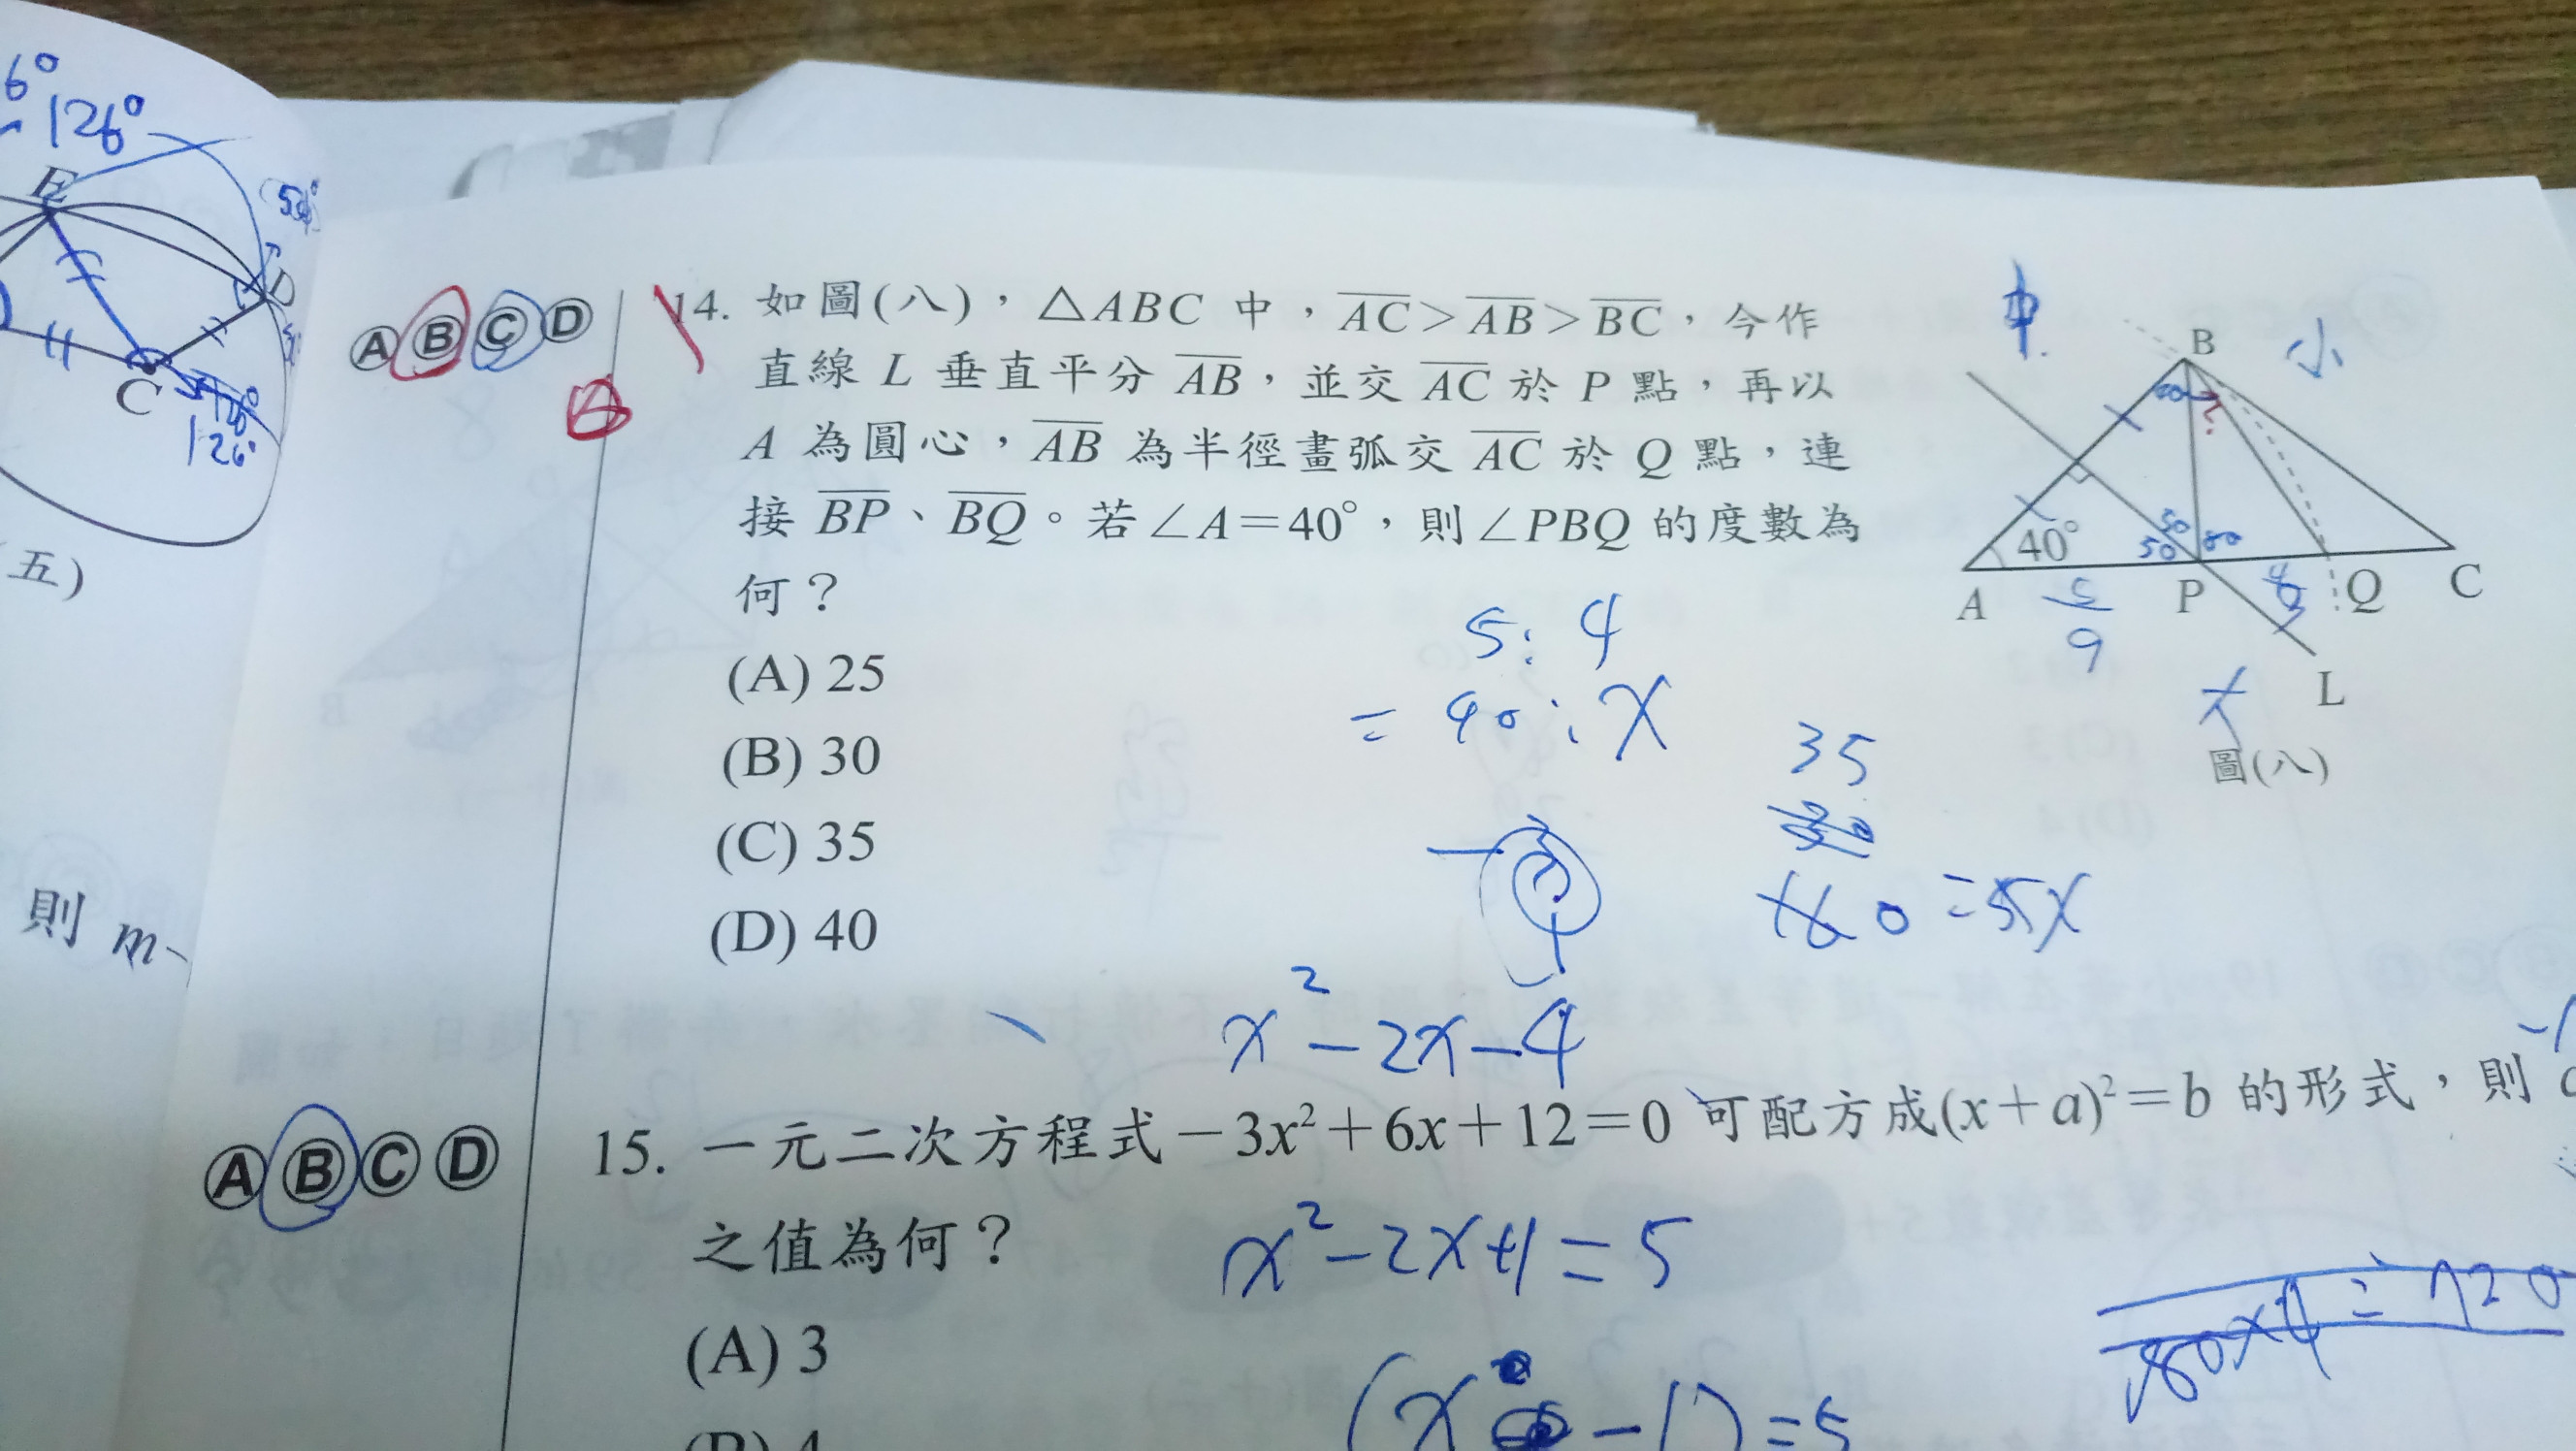 6°
126°
E
54°
D
C
126°
(五)
則 m-
Ⓐ Ⓑ Ⓒ Ⓓ
14. 如圖(八)，△ABC 中，AC>AB>BC，今作
直線 L 垂直平分 AB，並交 AC 於 P 點，再以
A 為圓心，AB 為半徑畫弧交 AC 於 Q 點，連
接 BP、BQ。若∠A=40°，則∠PBQ 的度數為
何？
(A) 25
(B) 30
(C) 35
(D) 40
中
B
小
40
?
40°
50
50
80
A
P
Q
C
5
9
4
L
大
圖(八)
5:4
=40:X
35
160=5X
x²-2x-4
Ⓐ Ⓑ Ⓒ Ⓓ
15. 一元二次方程式-3x²+6x+12=0 可配方成(x+a)²=b 的形式，則
之值為何？
x²-2x+1=5
(A) 3
180×4=720
(x-1)=5